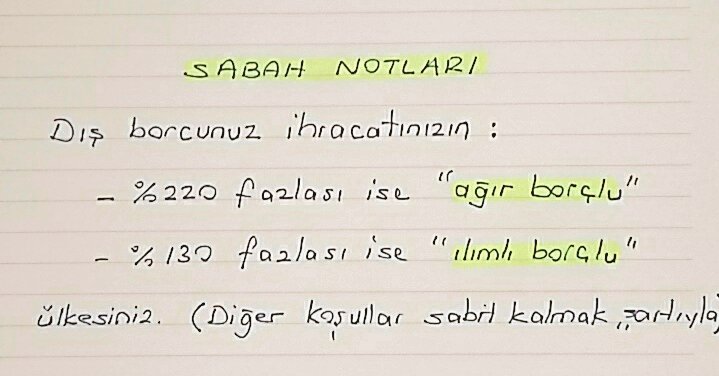 SABAH NOTLARI
Dış borcunuz ihracatınızın :
- %220 fazlası ise "ağır borçlu"
- %130 fazlası ise "ılımlı borçlu"
ülkesiniz. (Diğer koşullar sabit kalmak şartıyla)